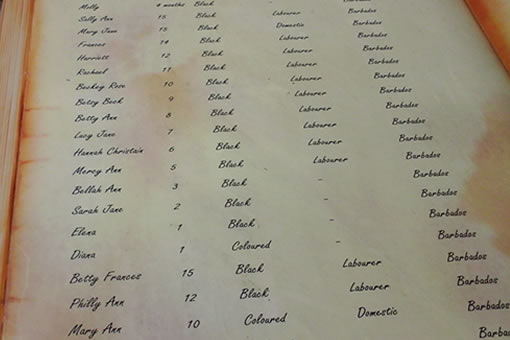 Molly 4 months Black
Sally Ann 15 Black Labourer Barbados
Mary Jane 15 Black Domestic Barbados
Frances 14 Black Labourer Barbados
Harriett 12 Black Labourer Barbados
Rachael 11 Black Labourer Barbados
Beckey Rose 10 Black Labourer Barbados
Betsy Beck 9 Black Labourer Barbados
Betty Ann 8 Black Labourer Barbados
Lucy Jane 7 Black Labourer Barbados
Hannah Christain 6 Black Labourer Barbados
Mercy Ann 5 Black Labourer Barbados
Bellah Ann 3 Black - Barbados
Sarah Jane 2 Black - Barbados
Elena 1 Black - Barbados
Diana 1 Coloured - Barbados
Betty Frances 15 Black Labourer Barbados
Philly Ann 12 Black Labourer Barbados
Mary Ann 10 Coloured Domestic Barbados